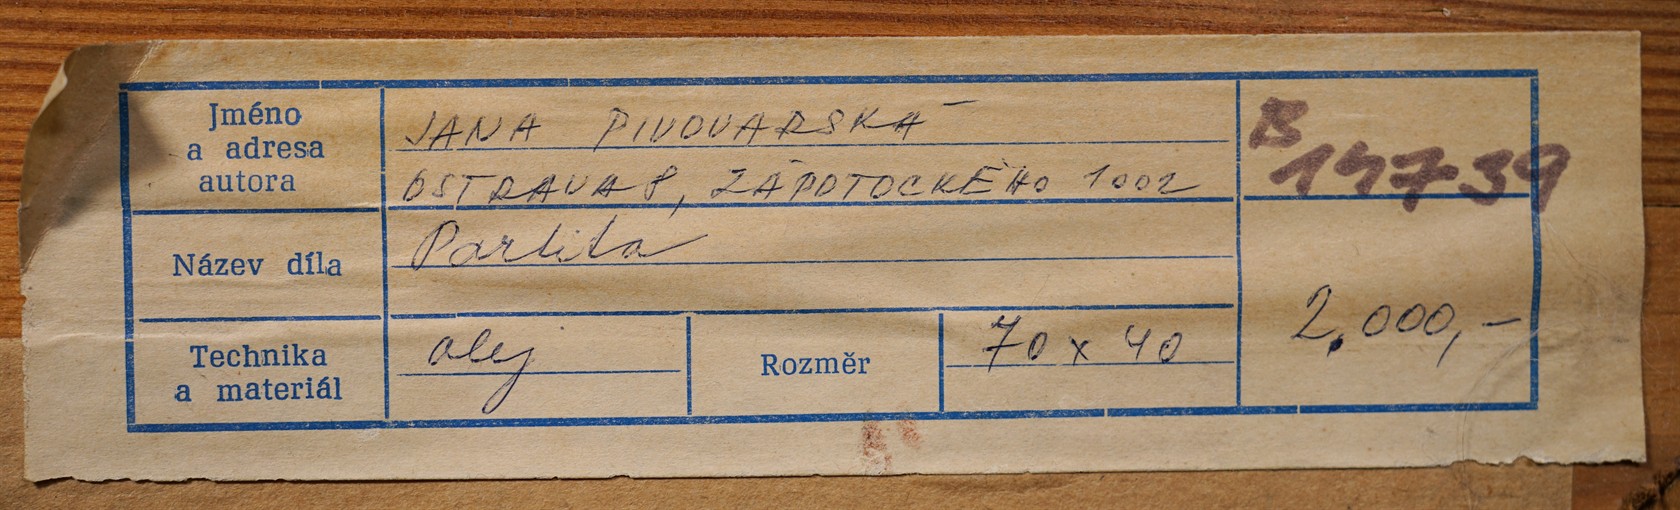 Jméno
a adresa
autora
JANA PIVOVARSKÁ
OSTRAVA 8, ZÁPOTOCKÉHO 1002
B
147739
Název díla
Partita
Technika
a materiál
olej
Rozměr
70 x 40
2.000,-